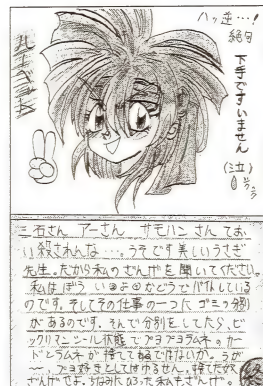 ハッ逆…!
絶句
下手ですいません
(泣)
三石さん アーさん サモハンさん てお
い殺されんな…。うそです美しいうさぎ
先生。だから私のざんげを聞いてください。
私はぼう
かどうでバイトしている
のです。そしてその仕事の一つにゴミの分別
があるのです。そんで分別をしてたら、ビ
ックリマンシール状態でプヨプヨラムネのカー
ドとラムネが捨ててあるではないか。うが
〜、プヨ好きとしてはゆるせん。捨てた奴
ざんげせよ。ちなみに
った私もざんげ。
終